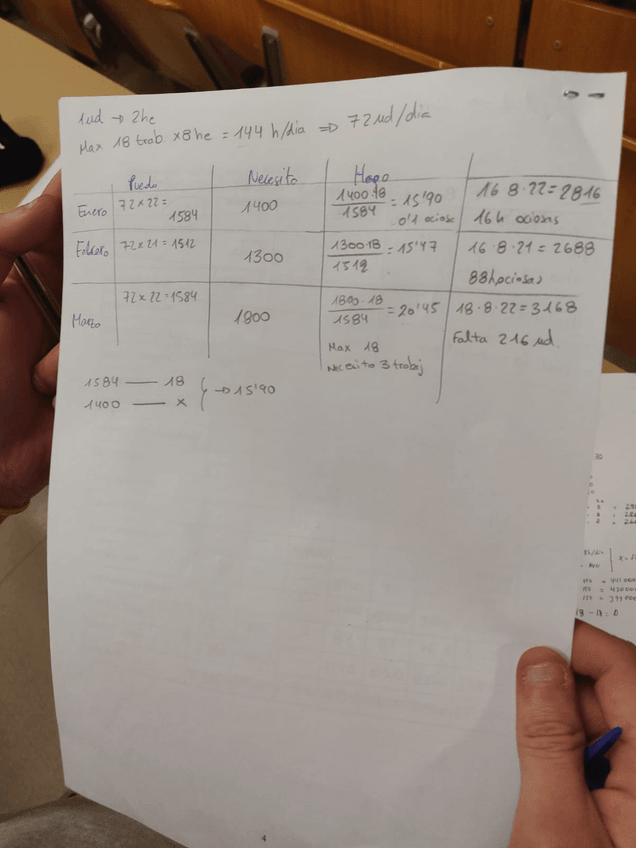 1ud → 2he
Max 18 trab. x8 he = 144 h/dia ⇒ 72 ud/dia
Puedo Necesito Hago
Enero 72x22= 1584 1400 1400·18 / 1584 = 15'90 16 8·22=2816
0'1 ociosc 16h ociosas
Febrero 72x21=1512 1300 1300·18 / 1512 = 15'47 16·8·21=2688
88h,ociosas
Marzo 72x22=1584 1800 1800·18 / 1584 = 20'45 18·8·22=3168
Max 18 Falta 216 ud.
Necesito 3 trabaj
1584 — 18
1400 — x } → 15'90
4